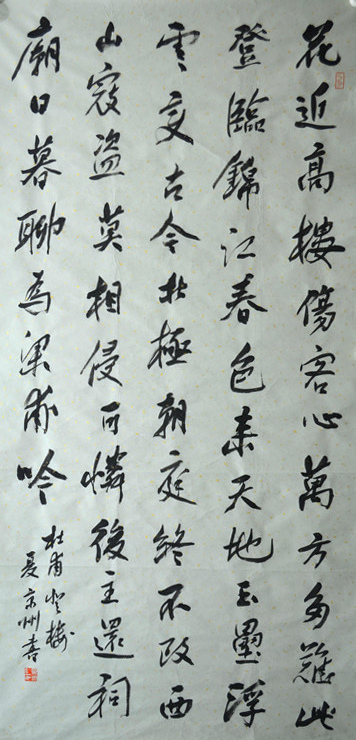 花近高樓傷客心萬方多難此
登臨錦江春色來天地玉壘浮
雲变古今北極朝庭終不改西
山寇盗莫相侵可憐後主還祠
廟日暮聊為梁甫吟
杜甫登樓
夏京州書